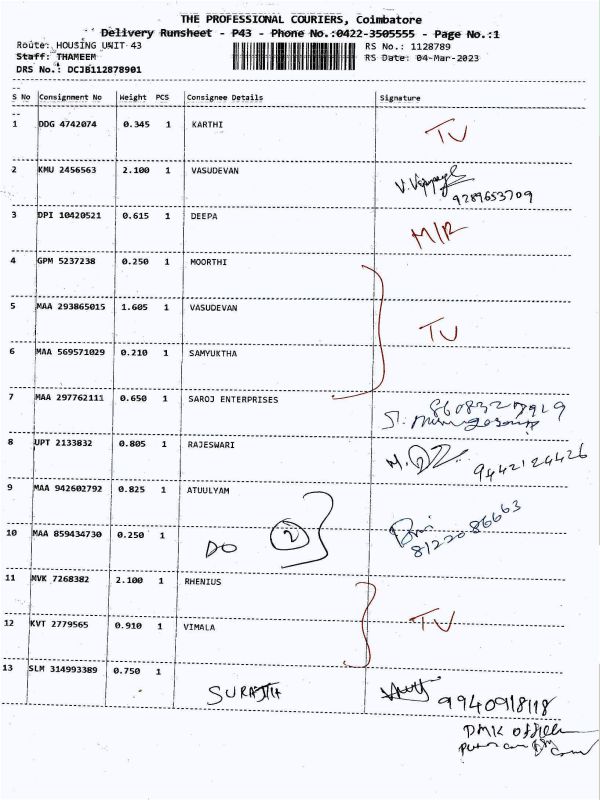 THE PROFESSIONAL COURIERS, Coimbatore
Delivery Runsheet - P43 - Phone No.:0422-3505555 - Page No.:1
Route: HOUSING UNIT 43 RS No.: 1128789
Staff: THAMEEM RS Date: 04-Mar-2023
DRS No.: DCJB112878901
S No Consignment No Weight PCS Consignee Details Signature
1 DDG 4742074 0.345 1 KARTHI TV
2 KMU 2456563 2.100 1 VASUDEVAN
9289653709
3 DPI 10420521 0.615 1 DEEPA M/R
4 GPM 5237238 0.250 1 MOORTHI
5 MAA 293865015 1.605 1 VASUDEVAN
TV
6 MAA 569571029 0.210 1 SAMYUKTHA
7 MAA 297762111 0.650 1 SAROJ ENTERPRISES
8 UPT 2133832 0.805 1 RAJESWARI 9442124426
9 MAA 942602792 0.825 1 ATUULYAM
10 MAA 859434730 0.250 1 DO 2 8122086663
11 MVK 7268382 2.100 1 RHENIUS
12 KVT 2779565 0.910 1 VIMALA TV
13 SLM 314993389 0.750 1
9940918118
DMK